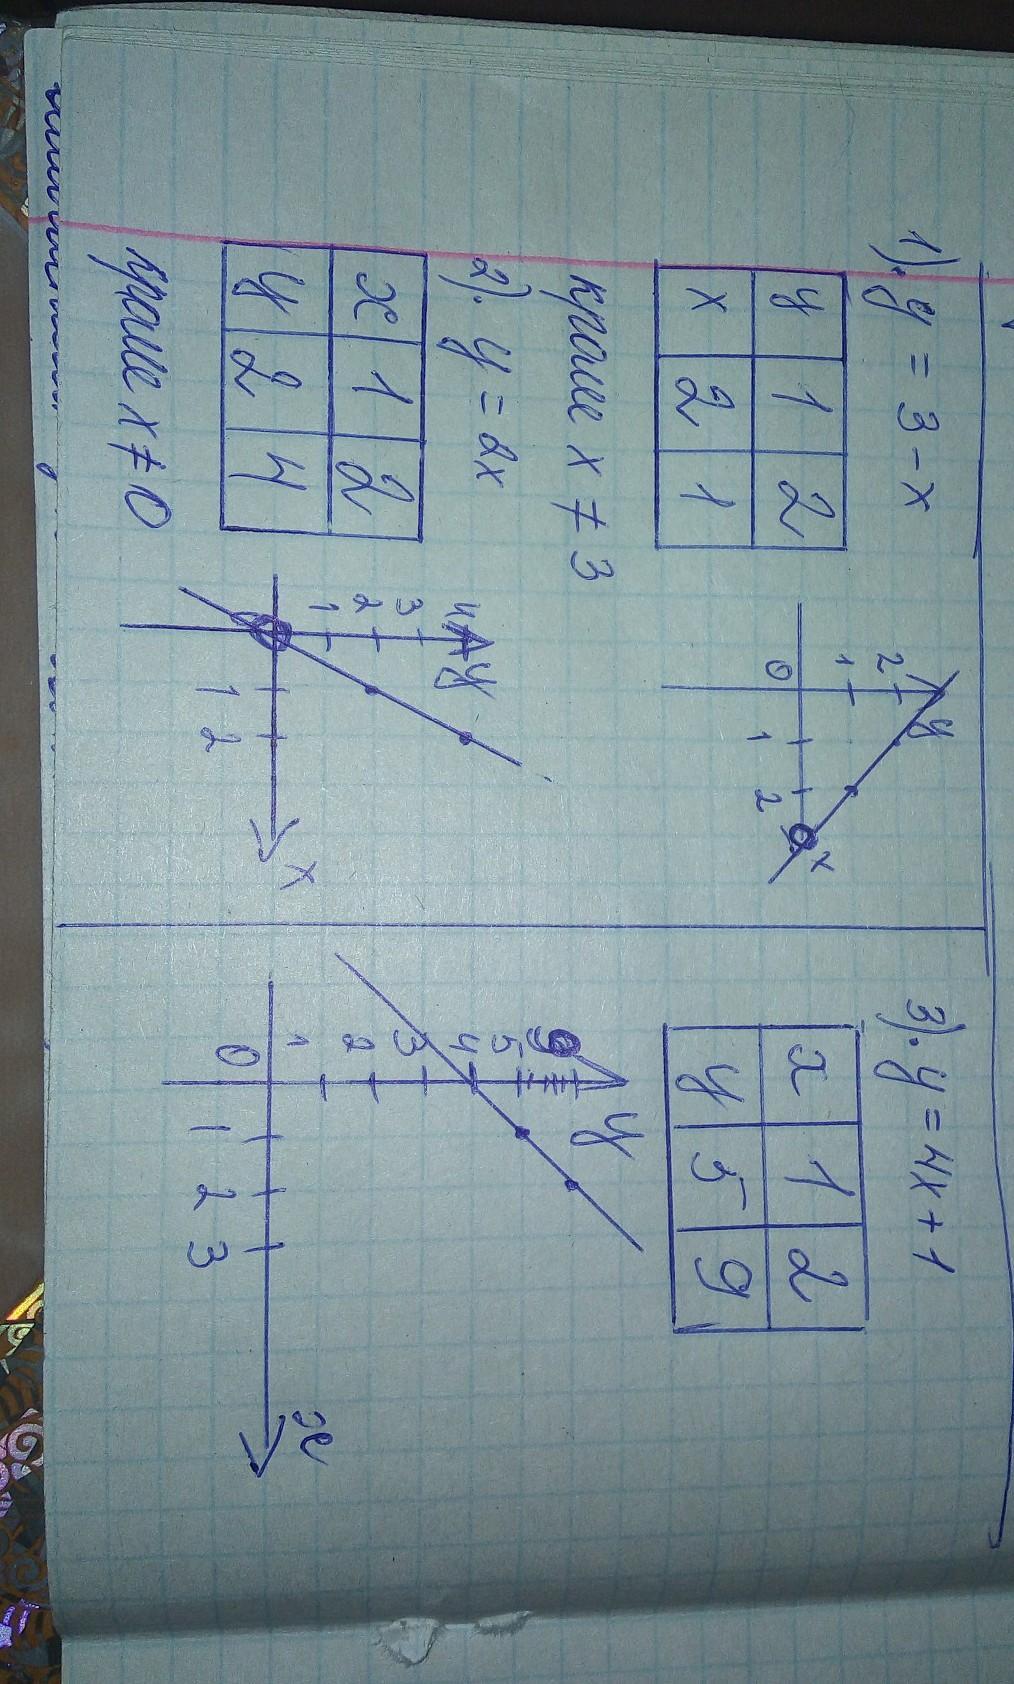 1). y = 3 - x
y 1 2
x 2 1
кроме x ≠ 3
y
2
1
0
1
2
x
2). y = 2x
x 1 2
y 2 4
кроме x ≠ 0
y
4
3
2
1
1
2
x
3). y = 4x + 1
x 1 2
y 5 9
y
9
5
4
3
2
1
0
1
2
3
x